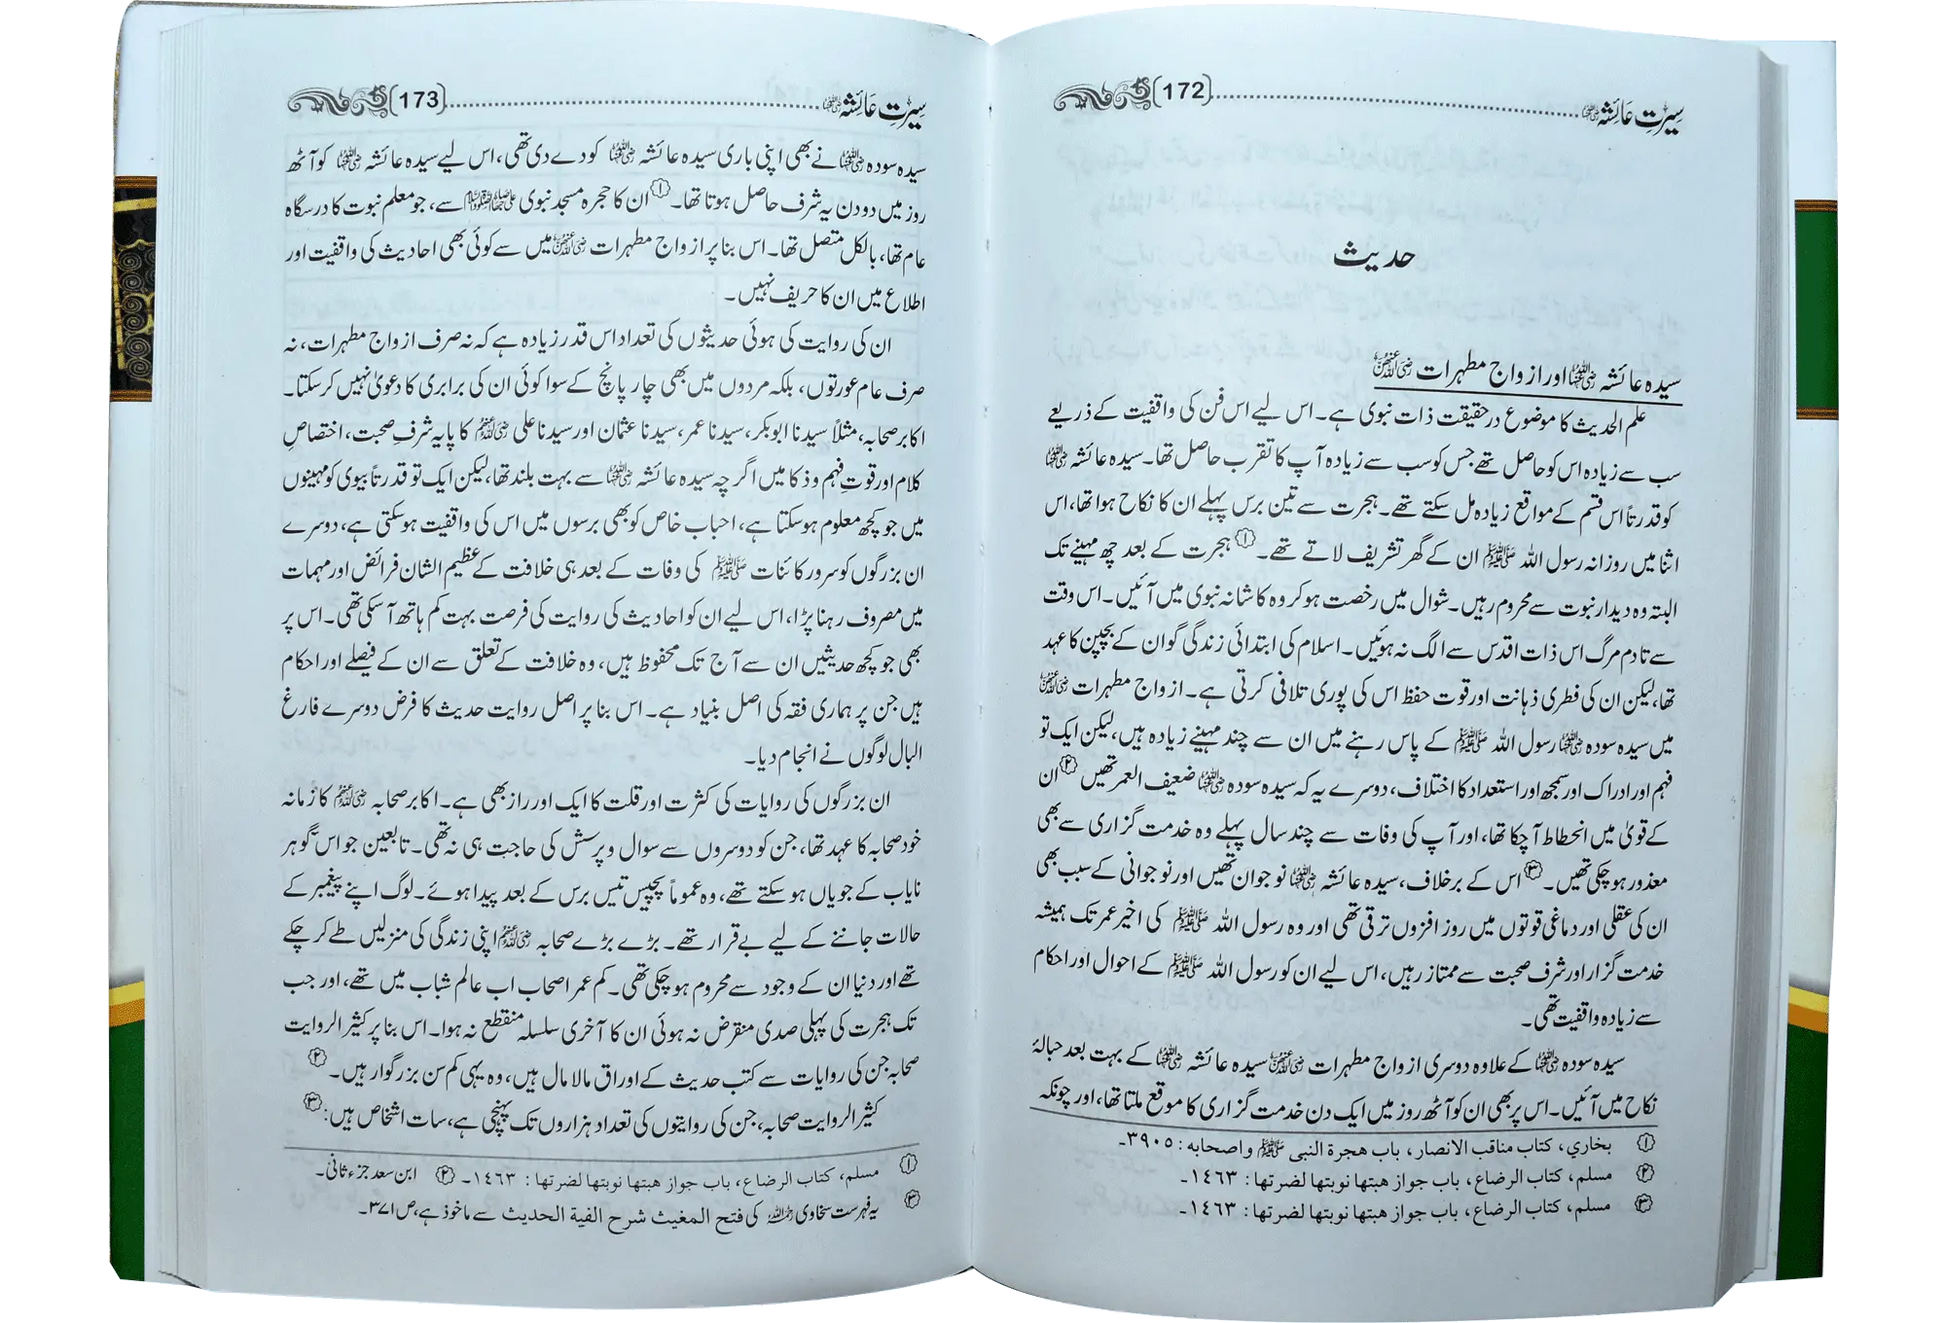 سیرتِ عائشہ ؓ (172)
حدیث
سیدہ عائشہ ؓ اور ازواج مطہرات ؓ
علم الحدیث کا موضوع درحقیقت ذات نبوی ہے۔ اس لیے اس فن کی واقفیت کے ذریعے
سب سے زیادہ اس کو حاصل تھے جس کو سب سے زیادہ آپ کا تقرب حاصل تھا۔ سیدہ عائشہ ؓ
کو قدرتاً اس قسم کے مواقع زیادہ مل سکتے تھے۔ ہجرت سے تین برس پہلے ان کا نکاح ہوا تھا، اس
اثنا میں روزانہ رسول اللہ ﷺ ان کے گھر تشریف لاتے تھے۔ ① ہجرت کے بعد چھ مہینے تک
البتہ وہ دیدار نبوت سے محروم رہیں۔ شوال میں رخصت ہو کر وہ کاشانہ نبوی میں آئیں۔ اس وقت
سے تادم مرگ اس ذات اقدس سے الگ نہ ہوئیں۔ اسلام کی ابتدائی زندگی گو ان کے بچپن کا عہد
تھا، لیکن ان کی فطری ذہانت اور قوت حفظ اس کی پوری تلافی کرتی ہے۔ ازواج مطہرات ؓ
میں سیدہ سودہ ؓ رسول اللہ ﷺ کے پاس رہنے میں ان سے چند مہینے زیادہ ہیں، لیکن ایک تو
فہم اور ادراک اور سمجھ اور استعداد کا اختلاف، دوسرے یہ کہ سیدہ سودہ ؓ ضعیف العمر تھیں ② ان
کے قویٰ میں انحطاط آ چکا تھا، اور آپ کی وفات سے چند سال پہلے وہ خدمت گزاری سے بھی
معذور ہو چکی تھیں۔ ③ اس کے برخلاف، سیدہ عائشہ ؓ نوجوان تھیں اور نوجوانی کے سبب بھی
ان کی عقلی اور دماغی قوتوں میں روز افزوں ترقی تھی اور وہ رسول اللہ ﷺ کی اخیر عمر تک ہمیشہ
خدمت گزار اور شرف صحبت سے ممتاز رہیں، اس لیے ان کو رسول اللہ ﷺ کے احوال اور احکام
سے زیادہ واقفیت تھی۔
سیدہ سودہ ؓ کے علاوہ دوسری ازواج مطہرات ؓ سیدہ عائشہ ؓ کے بہت بعد حبالۂ
نکاح میں آئیں۔ اس پر بھی ان کو آٹھ روز میں ایک دن خدمت گزاری کا موقع ملتا تھا، اور چونکہ
① بخاري، کتاب مناقب الانصار، باب هجرة النبی ﷺ واصحابه : ٣٩٠٥۔
② مسلم، کتاب الرضاع، باب جواز هبتها نوبتها لضرتها : ١٤٦٣۔
③ مسلم، کتاب الرضاع، باب جواز هبتها نوبتها لضرتها : ١٤٦٣۔
سیرتِ عائشہ ؓ (173)
سیدہ سودہ ؓ نے بھی اپنی باری سیدہ عائشہ ؓ کو دے دی تھی، اس لیے سیدہ عائشہ ؓ کو آٹھ
روز میں دو دن یہ شرف حاصل ہوتا تھا۔ ① ان کا حجرہ مسجد نبوی ﷺ سے، جو معلم نبوت کا درسگاہ
عام تھا، بالکل متصل تھا۔ اس بنا پر ازواج مطہرات ؓ میں سے کوئی بھی احادیث کی واقفیت اور
اطلاع میں ان کا حریف نہیں۔
ان کی روایت کی ہوئی حدیثوں کی تعداد اس قدر زیادہ ہے کہ نہ صرف ازواج مطہرات، نہ
صرف عام عورتوں، بلکہ مردوں میں بھی چار پانچ کے سوا کوئی ان کی برابری کا دعویٰ نہیں کر سکتا۔
اکابر صحابہ، مثلاً سیدنا ابوبکر، سیدنا عمر، سیدنا عثمان اور سیدنا علی ؓ کا پایہ شرفِ صحبت، اختصاصِ
کلام اور قوتِ فہم و ذکا میں اگرچہ سیدہ عائشہ ؓ سے بہت بلند تھا، لیکن ایک تو قدرتاً بیوی کو مہینوں
میں جو کچھ معلوم ہو سکتا ہے، احباب خاص کو بھی برسوں میں اس کی واقفیت ہو سکتی ہے، دوسرے
ان بزرگوں کو سرور کائنات ﷺ کی وفات کے بعد ہی خلافت کے عظیم الشان فرائض اور مہمات
میں مصروف رہنا پڑا، اس لیے ان کو احادیث کی روایت کی فرصت بہت کم ہاتھ آ سکی تھی۔ اس پر
بھی جو کچھ حدیثیں ان سے آج تک محفوظ ہیں، وہ خلافت کے تعلق سے ان کے فیصلے اور احکام
ہیں جن پر ہماری فقہ کی اصل بنیاد ہے۔ اس بنا پر اصل روایت حدیث کا فرض دوسرے فارغ
البال لوگوں نے انجام دیا۔
ان بزرگوں کی روایات کی کثرت اور قلت کا ایک اور راز بھی ہے۔ اکابر صحابہ ؓ کا زمانہ
خود صحابہ کا عہد تھا، جن کو دوسروں سے سوال و پرسش کی حاجت ہی نہ تھی۔ تابعین جو اس گوہر
نایاب کے جویاں ہو سکتے تھے، وہ عموماً پچیس تیس برس کے بعد پیدا ہوئے۔ لوگ اپنے پیغمبر کے
حالات جاننے کے لیے بے قرار تھے۔ بڑے بڑے صحابہ ؓ اپنی زندگی کی منزلیں طے کر چکے
تھے اور دنیا ان کے وجود سے محروم ہو چکی تھی۔ کم عمر اصحاب اب عالم شباب میں تھے، اور جب
تک ہجرت کی پہلی صدی منقرض نہ ہوئی ان کا آخری سلسلہ منقطع نہ ہوا۔ اس بنا پر کثیر الروایت
صحابہ جن کی روایات سے کتب حدیث کے اوراق مالا مال ہیں، وہ یہی کم سن بزرگوار ہیں۔ ②
کثیر الروایت صحابہ، جن کی روایتوں کی تعداد ہزاروں تک پہنچی ہے، سات اشخاص ہیں: ③
① مسلم، کتاب الرضاع، باب جواز هبتها نوبتها لضرتها : ١٤٦٣۔ ② ابن سعد جزء ثانی۔
③ یہ فہرست سخاوی ؒ کی فتح المغیث شرح الفیة الحدیث سے ماخوذ ہے، ص ٣٧١۔